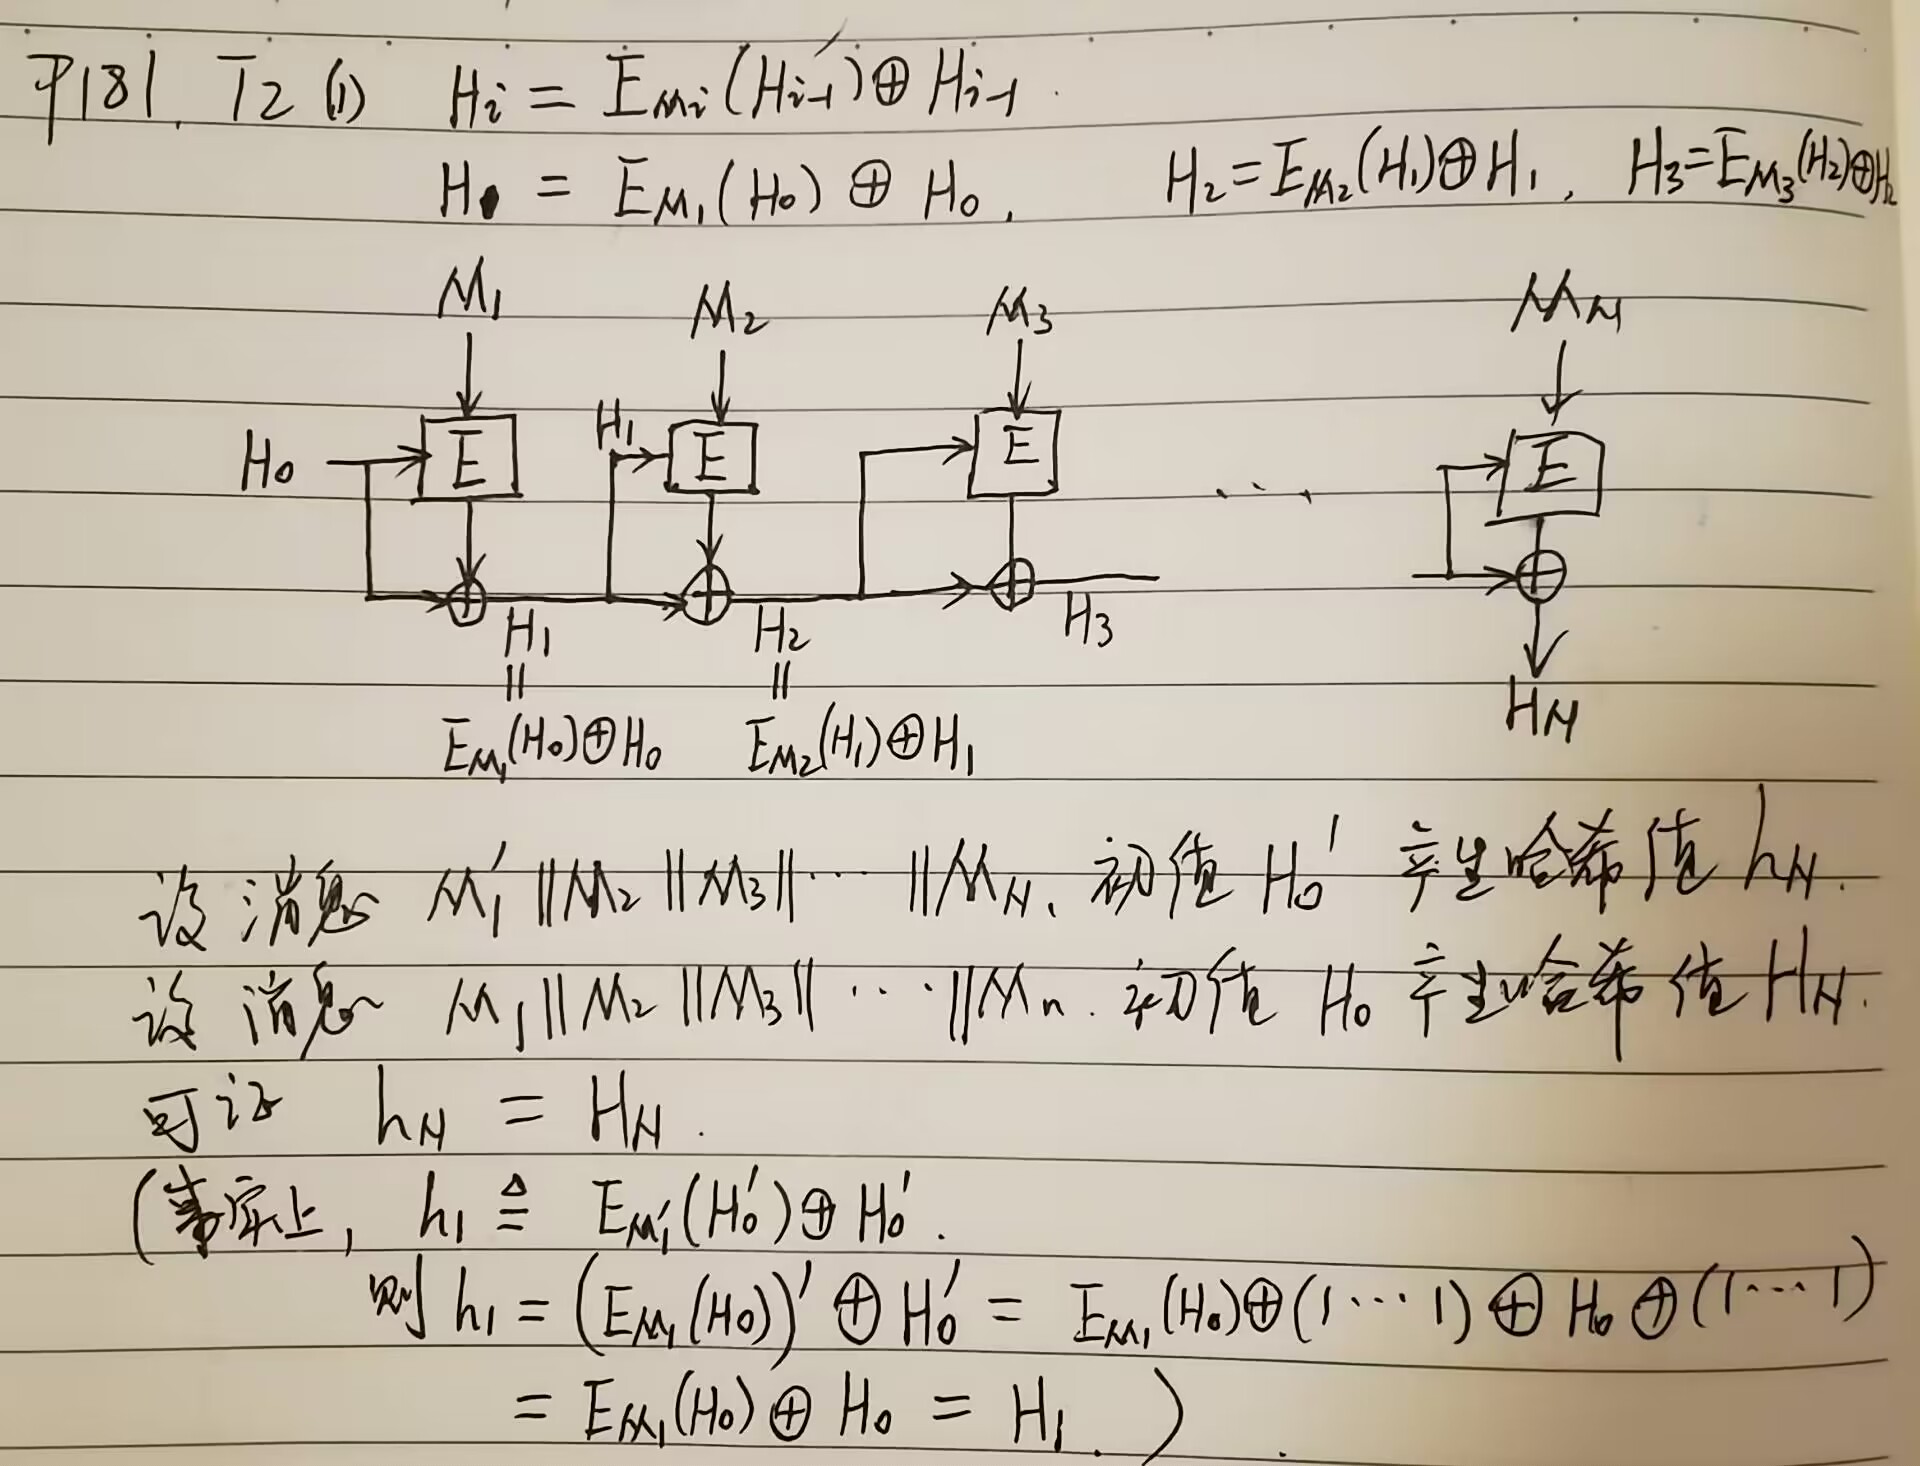 P181. T2 (1) Hi = EMi(Hi-1) ⊕ Hi-1.
H1 = EM1(H0) ⊕ H0. H2 = EM2(H1) ⊕ H1, H3 = EM3(H2) ⊕ H2
M1 M2 M3 MN
H0 E H1 E E ... E
⊕ H1 ⊕ H2 ⊕ H3 ⊕
|| ||
EM1(H0) ⊕ H0 EM2(H1) ⊕ H1 HN
设消息 M1' || M2 || M3 || ... || MN. 初值 H0' 产生哈希值 hN.
设消息 M1 || M2 || M3 || ... || Mn. 初值 H0 产生哈希值 HN.
可证 hN = HN.
(事实上, h1 ≜ EM1'(H0') ⊕ H0'.
则 h1 = (EM1(H0))' ⊕ H0' = EM1(H0) ⊕ (1...1) ⊕ H0 ⊕ (1...1)
= EM1(H0) ⊕ H0 = H1.)